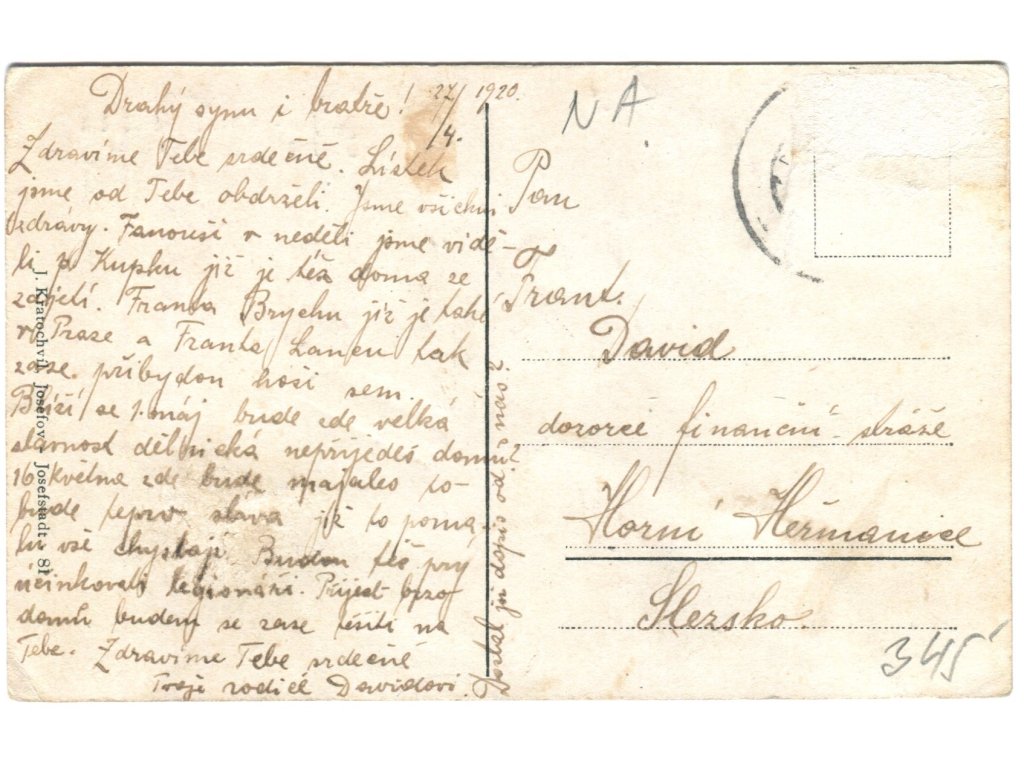 Drahý synu i bratře! 27/4. 1920.
Zdravíme Tebe srdečně. Lístek
jsme od Tebe obdrželi. Jsme všichni
zdrávy. Fanouši v neděli jsme vidě-
li p Kupku již je téz doma ze
zajetí. Franta Brychu již je také
v Praze a Franta Lancu tak
zase přibydou hoši sem.
Blíží se 1. máj bude zde velká
slavnost dělnická nepřijedeš domu?
16 Května zde bude majales to-
bude teprv sláva již to poma-
lu vše chystají Budou též prý
účinkovati legionáři. Přijeď brzo
domů budem se zase těšiti na
Tebe. Zdravíme Tebe srdečně
Tvoje rodiče Davidovi.
Dostal jsi dopis od nás?
J. Kratochvíl, Josefov - Josefstadt 81
NA
Pan
Frant.
David
dozorce finanční stráže
Horní Heřmanice
Slezsko
345